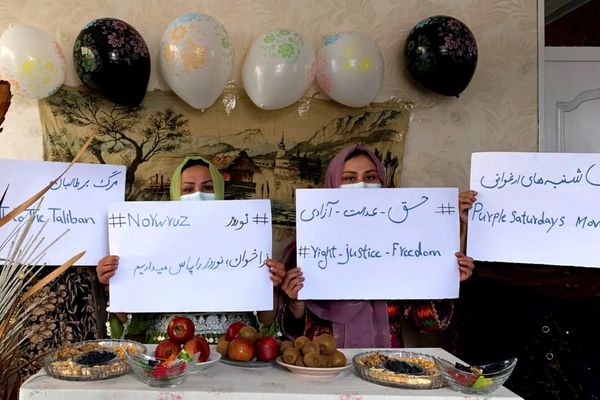 مرگ بر طالبان
to The Taliban
#Nowruz
نوروز #
فراخوان؛ نوروز را پاس میداریم
حق - عدالت - آزادی #
#right-justice-Freedom
شنبه های ارغوانی
Purple Saturdays Mov